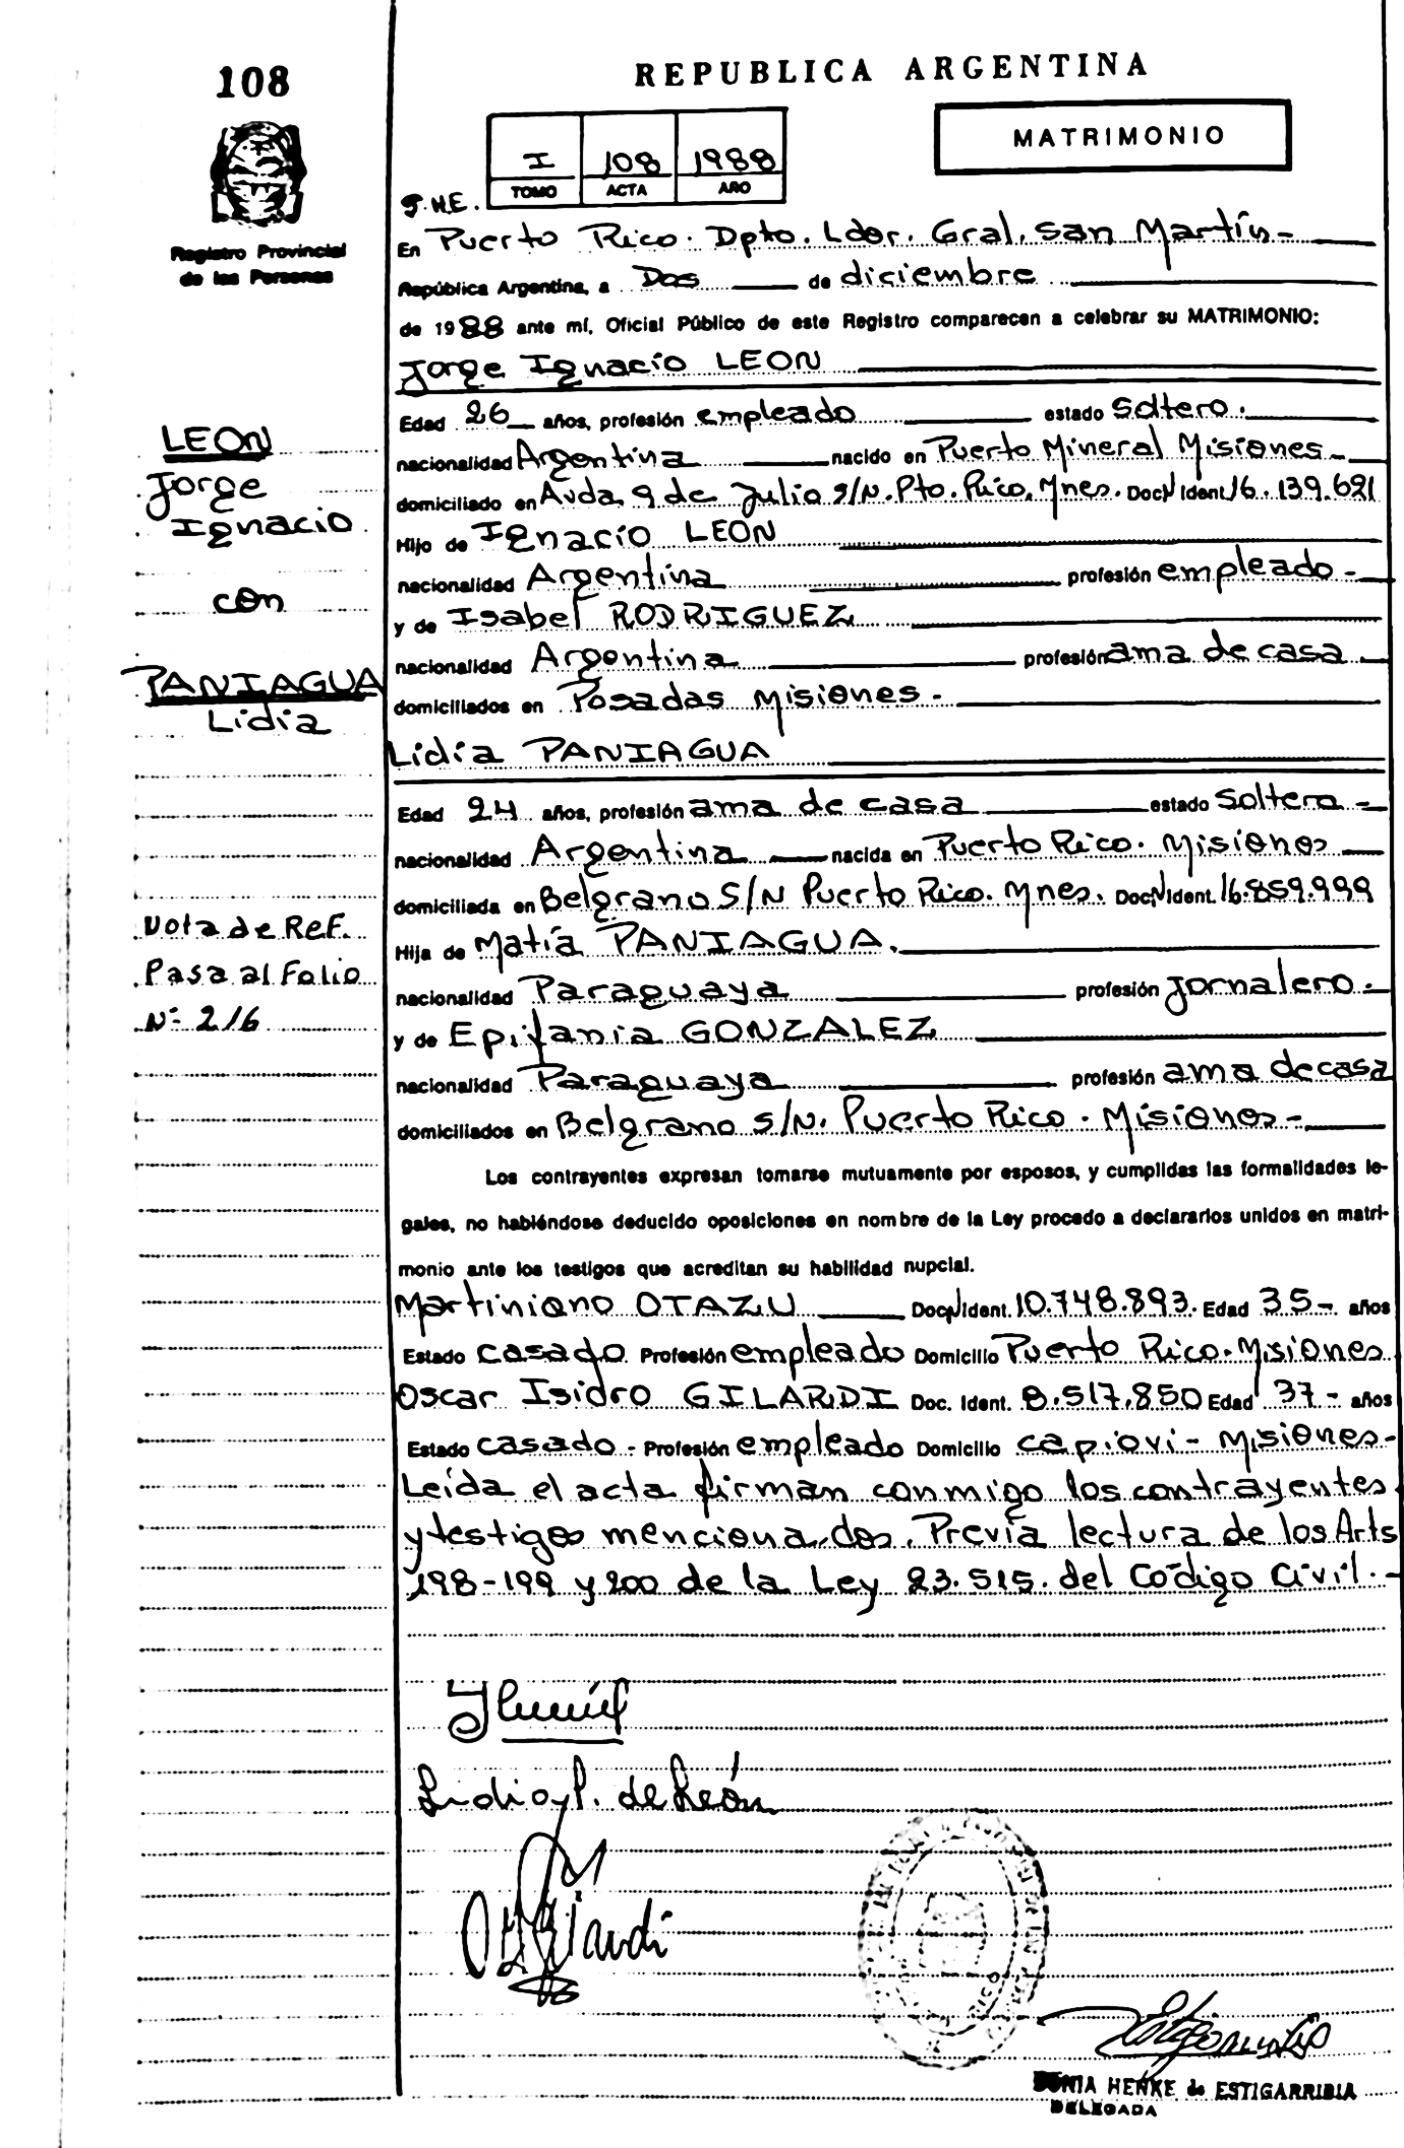 108
REPUBLICA ARGENTINA
MATRIMONIO
I 108 1988
TOMO ACTA AÑO
Registro Provincial
de las Personas
J.H.E.
En Puerto Rico. Dpto. Ldor. Gral. San Martín-
República Argentina, a Dos de diciembre
de 1988 ante mí, Oficial Público de este Registro comparecen a celebrar su MATRIMONIO:
Jorge Ignacio LEON
Edad 26 años, profesión empleado estado Soltero.
nacionalidad Argentina nacido en Puerto Mineral Misiones-
domiciliado en Avda 9 de Julio S/N. Pto. Rico. Mnes. Doc. Ident. 16.139.621
Hijo de Ignacio LEON
nacionalidad Argentina profesión empleado-
y de Isabel RODRIGUEZ
nacionalidad Argentina profesión ama de casa
domiciliados en Posadas Misiones-
Lidia PANIAGUA
Edad 24 años, profesión ama de casa estado Soltera-
nacionalidad Argentina nacida en Puerto Rico. Misiones
domiciliada en Belgrano S/N Puerto Rico. Mnes. Doc. Ident. 16.859.999
Hija de Matía PANIAGUA.
nacionalidad Paraguaya profesión Jornalero.
y de Epifania GONZALEZ
nacionalidad Paraguaya profesión ama de casa
domiciliados en Belgrano S/N. Puerto Rico. Misiones-
LEON
Jorge
Ignacio
con
PANIAGUA
Lidia
Nota de Ref.
Pasa al Folio
Nº 216
Los contrayentes expresan tomarse mutuamente por esposos, y cumplidas las formalidades le-
gales, no habiéndose deducido oposiciones en nombre de la Ley procedo a declararlos unidos en matri-
monio ante los testigos que acreditan su habilidad nupcial.
Martiniano OTAZU Doc. Ident. 10.748.893. Edad 35- años
Estado casado Profesión empleado Domicilio Puerto Rico. Misiones
Oscar Isidro GILARDI Doc. Ident. 8.517.850 Edad 37- años
Estado casado- Profesión empleado Domicilio Capiovi- Misiones-
Leída el acta firman conmigo los contrayentes
y testigos mencionados. Previa lectura de los Arts
198-199 y 200 de la Ley 23.515. del Código Civil.-
Lidia P. de León
SONIA HENKE de ESTIGARRIBIA
DELEGADA